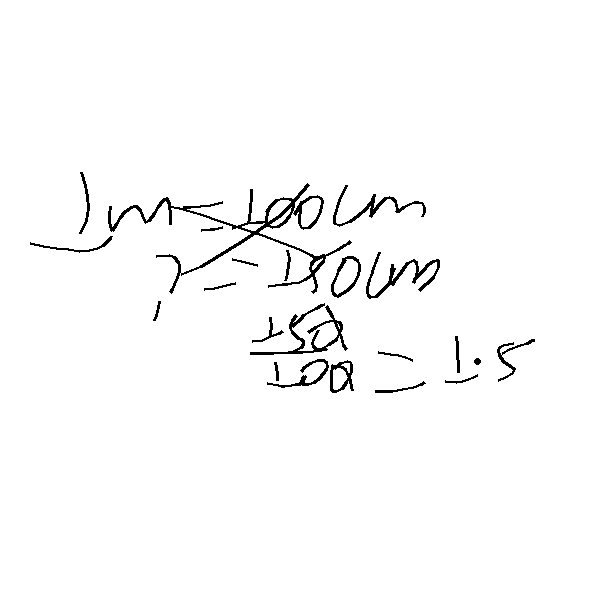 1m = 100cm
? = 150cm
150/100 = 1.5